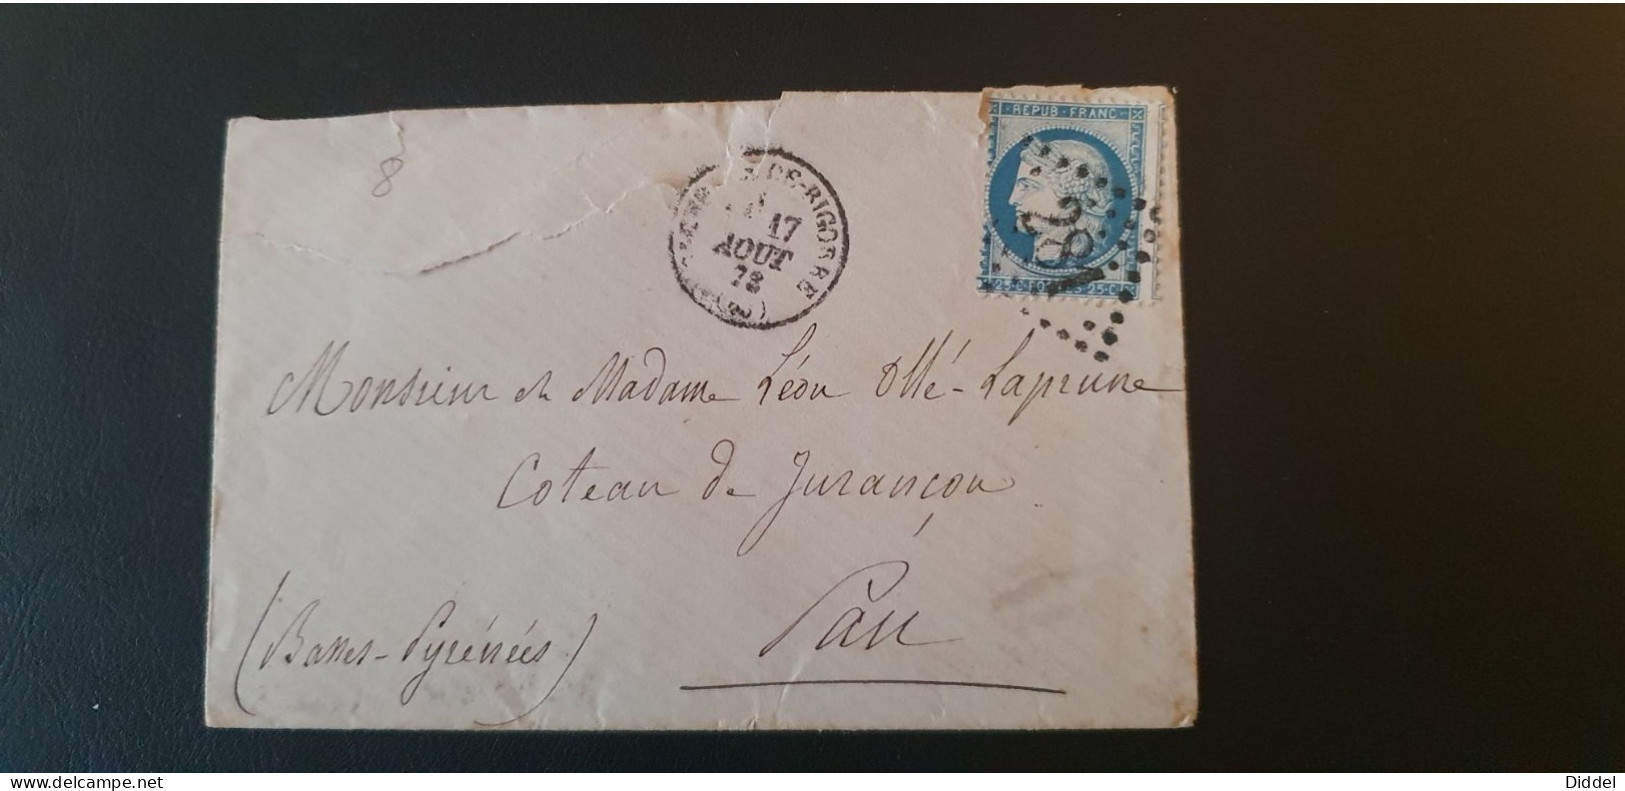 8
REPUB·FRANC
DE-BIGORRE
17
AOUT
281
25·C 25·C
Monsieur et Madame Léon Ollé-Laprune
Coteau de Jurançon
Pau
(Basses-Pyrénées)
https://www.delcampe.net
Diddel